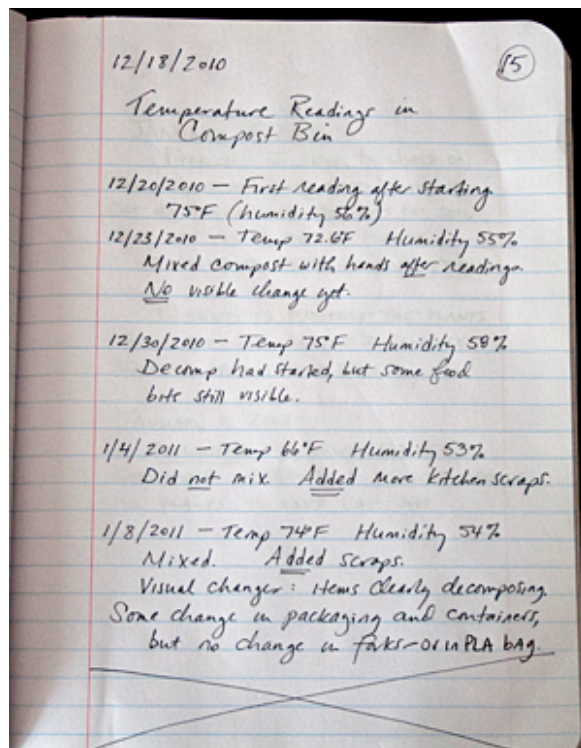 12/18/2010 15
Temperature Readings in
Compost Bin
12/20/2010 – First reading after starting
75°F (humidity 56%)
12/23/2010 – Temp 72.6°F Humidity 55%
Mixed compost with hands after readings.
No visible change yet.
12/30/2010 – Temp 75°F Humidity 58%
Decomp had started, but some food
bits still visible.
1/4/2011 – Temp 66°F Humidity 53%
Did not mix. Added more kitchen scraps.
1/8/2011 – Temp 74°F Humidity 54%
Mixed. Added scraps.
Visual changes: items clearly decomposing.
Some change in packaging and containers,
but no change in forks – or in PLA bag.